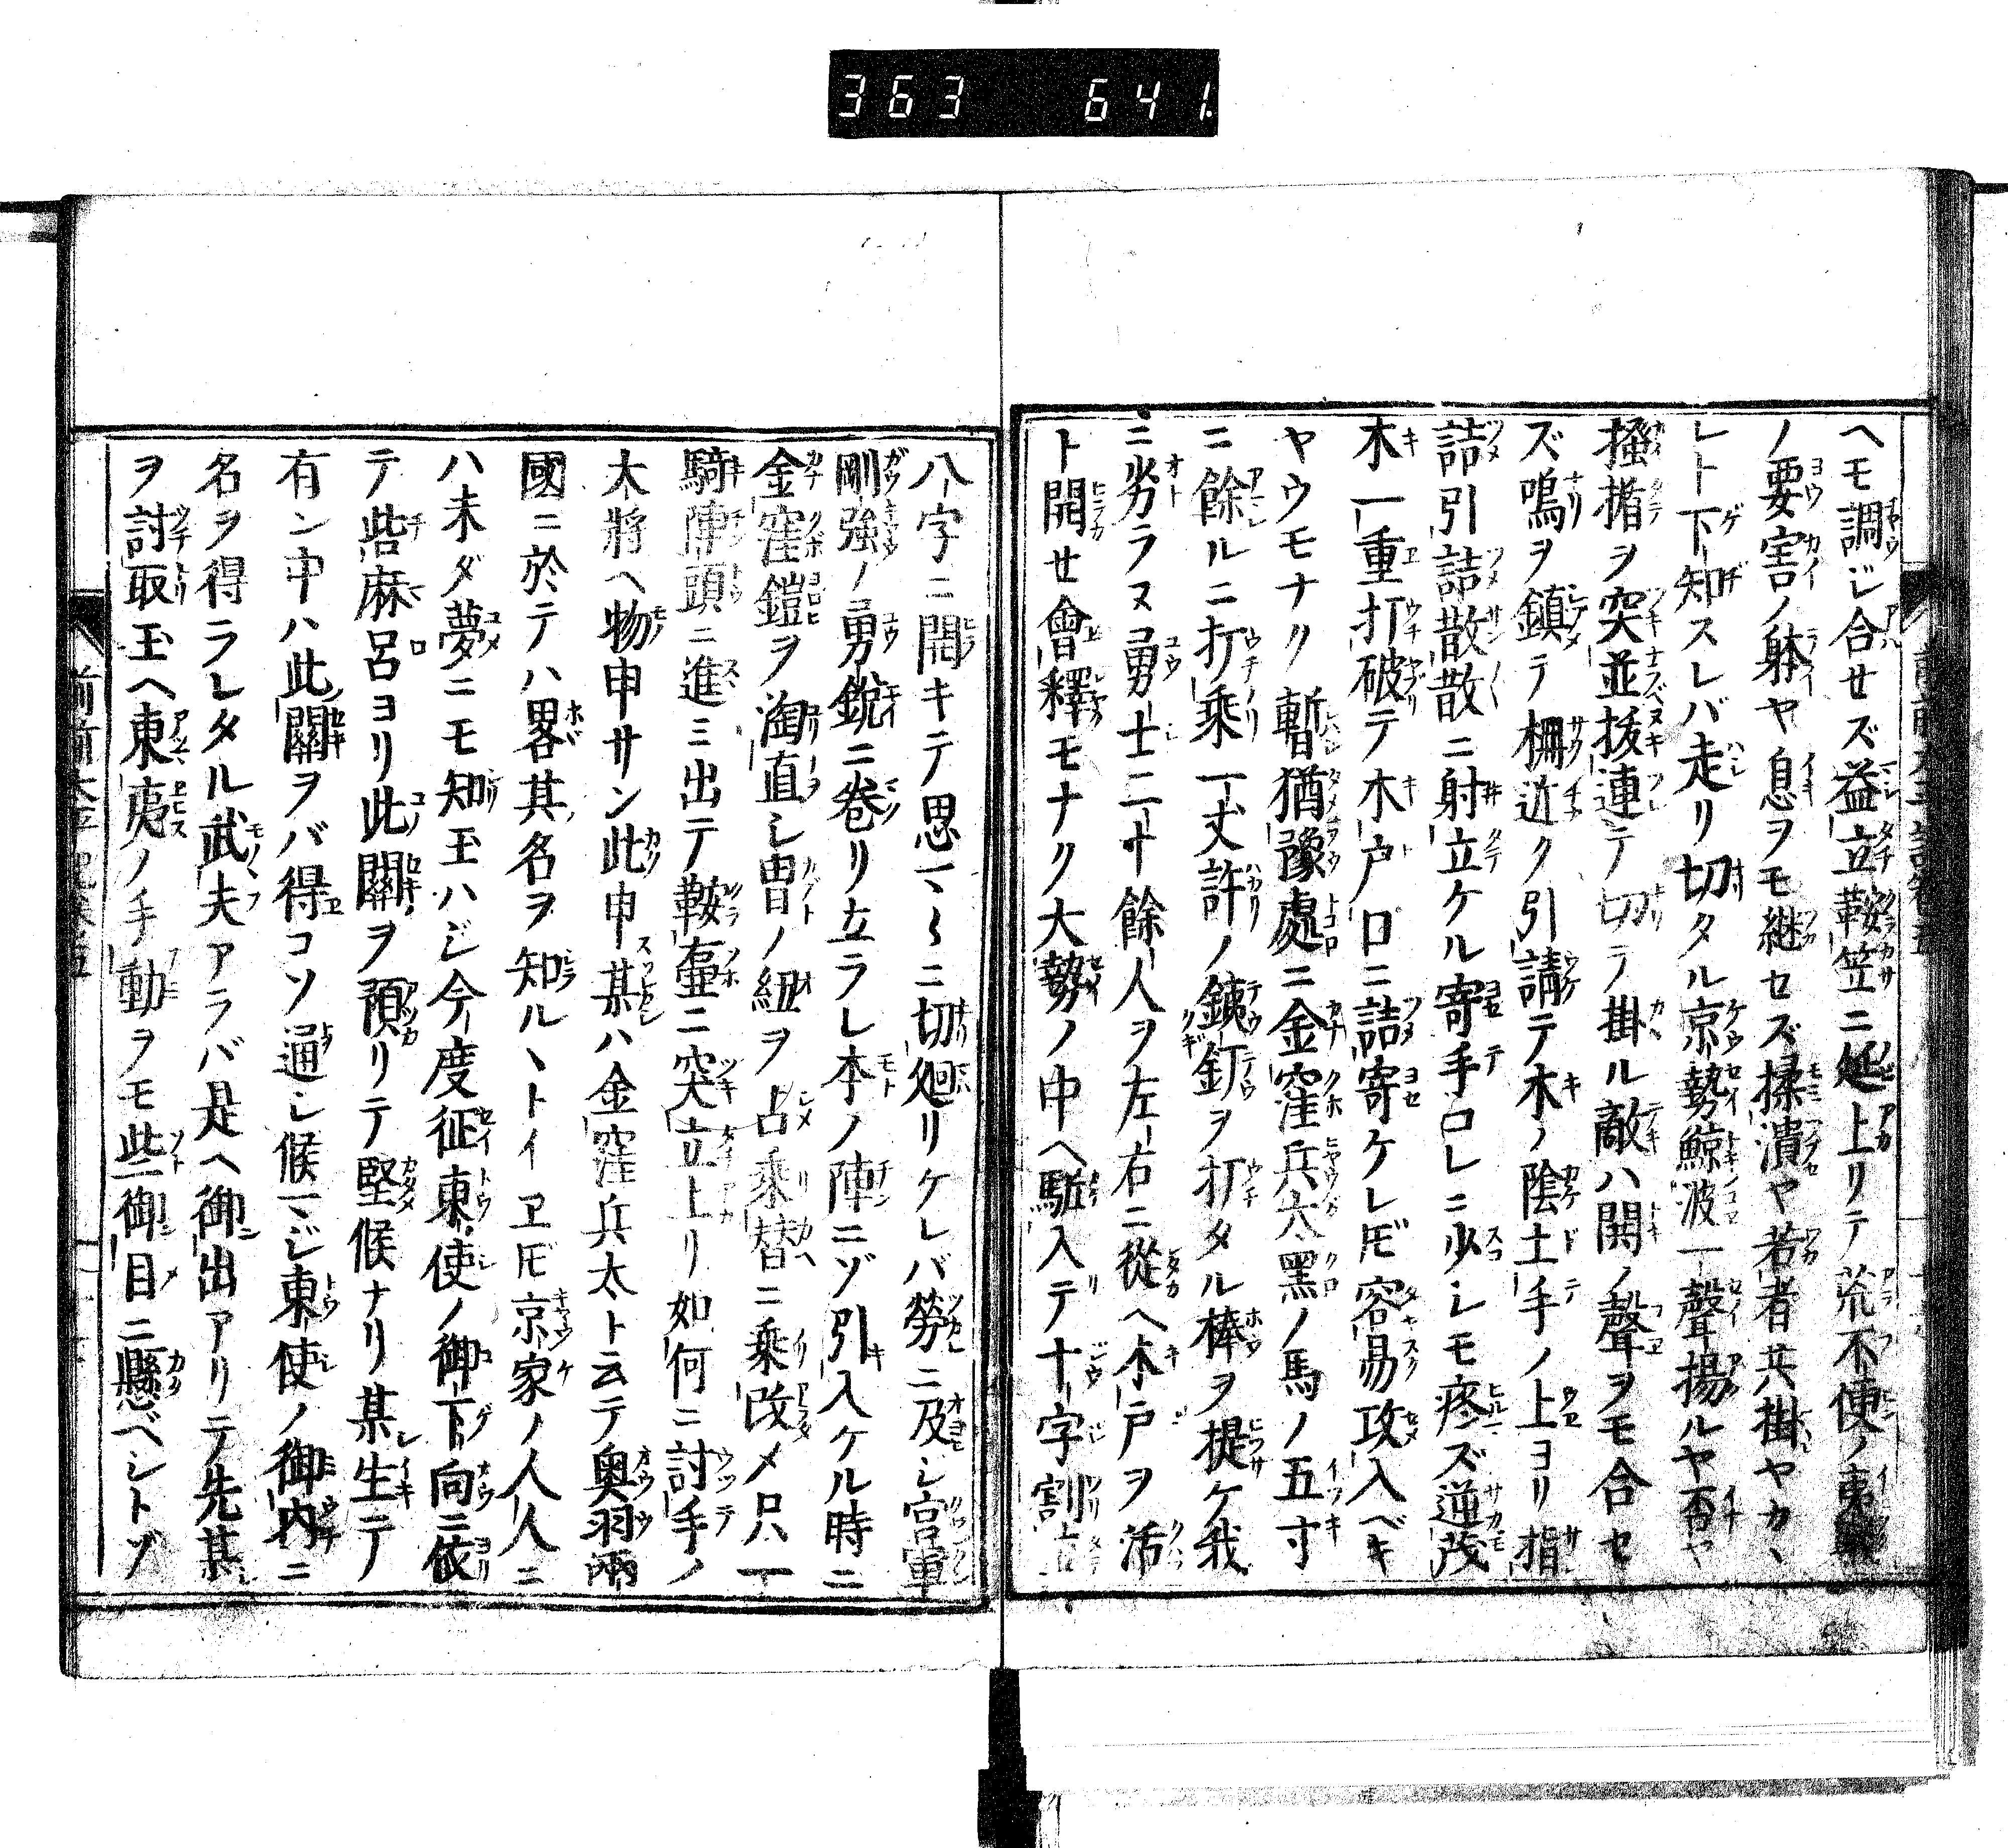 363 641
ヘモ調ジ合セズ益立鞍笠ニ延上リテ荒不便ノ夷
ノ要害ノ躰ヤ息ヲモ継セズ揉潰ヤ若者共掛ヤカヽ
レト下知スレバ走リ切タル京勢鯨波一聲揚ルヤ否ヤ
掻楯ヲ突並抜連テ切テ掛ル敵ハ開ノ聲ヲモ合セ
ズ鳴ヲ鎮テ柵近ク引請テ木ノ陰土手ノ上ヨリ指
詰引詰散散ニ射立ケル寄手コレニ少シモ疼ズ逆茂
木一重打破テ木戸口ニ詰寄ケレ𪜈容易攻入ベキ
ヤウモナク暫猶豫處ニ金窪兵太黒ノ馬ノ五寸
ニ餘ルニ打乗一丈許ノ銕釘ヲ打タル棒ヲ提ケ我
ニ劣ラヌ勇士二十餘人ヲ左右ニ從ヘ木戸ヲ活
ト開セ會釋モナク大勢ノ中ヘ駈入テ十字割
八字ニ開キテ思マヽニ切廻リケレバ勞ニ及シ官軍
剛強ノ勇鋭ニ巻リ立ラレ本ノ陣ニゾ引入ケル時ニ
金窪鎧ヲ淘直シ冑ノ紐ヲ占乘替ニ乗改メ只一
騎陣頭ニ進ミ出テ鞍壷ニ突立上リ如何ニ討手ノ
大將ヘ物申サン此申某ハ金窪兵太ト云テ奥羽兩
國ニ於テハ畧其名ヲ知ルヽトイヱ𪜈京家ノ人人ニ
ハ未ダ夢ニモ知玉ハジ今度征東使ノ御下向ニ依
テ砦麻呂ヨリ此關ヲ預リテ堅候ナリ某生テ
有ン中ハ此關ヲバ得コソ通シ候マジ東使ノ御内ニ
名ヲ得ラレタル武夫アラバ是ヘ御出アリテ先某
ヲ討取玉ヘ東夷ノ手動ヲモ些御目ニ懸ベシトゾ